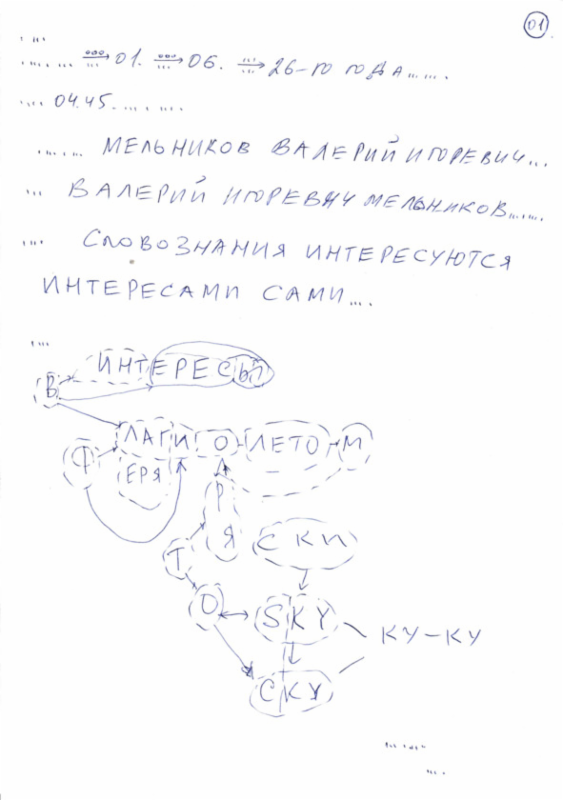 01
.... ...
..... ... ⇒ 01. ⇒ 06. ⇒ 26-ГО ГОДА......
.... 04.45. .... . ...
...... МЕЛЬНИКОВ ВАЛЕРИЙ ИГОРЕВИЧ...
... ВАЛЕРИЙ ИГОРЕВИЧ МЕЛЬНИКОВ......
.... СЛОВОЗНАНИЯ ИНТЕРЕСУЮТСЯ
ИНТЕРЕСАМИ САМИ....
....
ИНТЕРЕСЫ
В
ЛАГИ О-ЛЕТО-М
Ф
ЕРЯ
Р
Я
СКИ
Т
О
SKY
КУ-КУ
СКУ